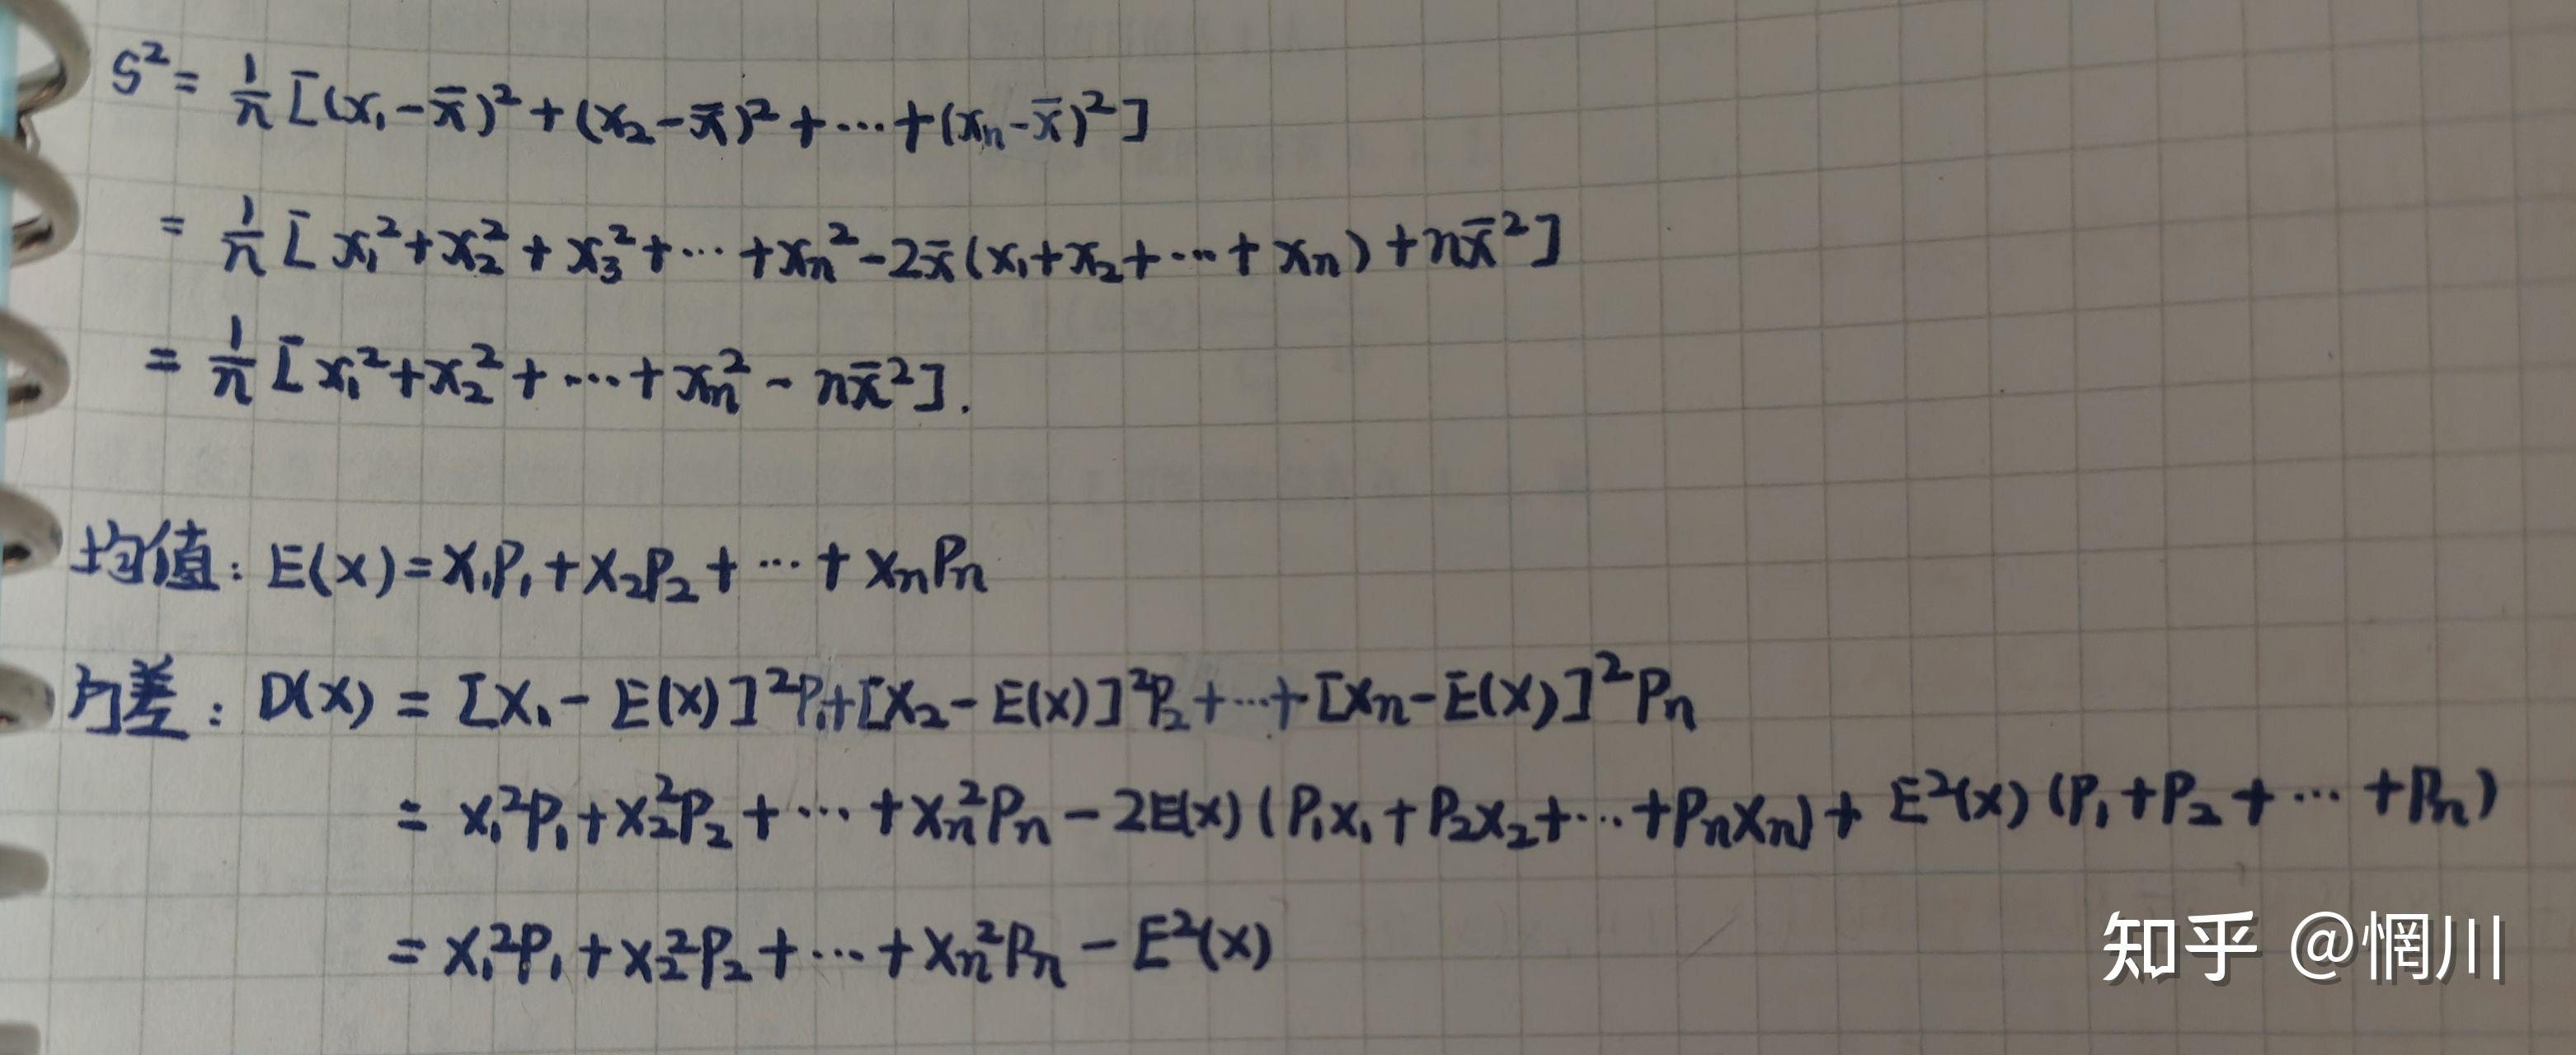 S² = 1/n [(x₁-x̄)² + (x₂-x̄)² + ··· + (xₙ-x̄)²]
= 1/n [x₁²+x₂²+x₃²+···+xₙ²-2x̄(x₁+x₂+···+xₙ)+nx̄²]
= 1/n [x₁²+x₂²+···+xₙ²-nx̄²].
均值: E(x)=x₁P₁+x₂P₂+···+xₙPₙ
方差: D(x) = [x₁-E(x)]²P₁+[x₂-E(x)]²P₂+···+[xₙ-E(x)]²Pₙ
= x₁²P₁+x₂²P₂+···+xₙ²Pₙ-2E(x)(P₁x₁+P₂x₂+···+Pₙxₙ)+E²(x)(P₁+P₂+···+Pₙ)
= x₁²P₁+x₂²P₂+···+xₙ²Pₙ-E²(x)
知乎 @惘川